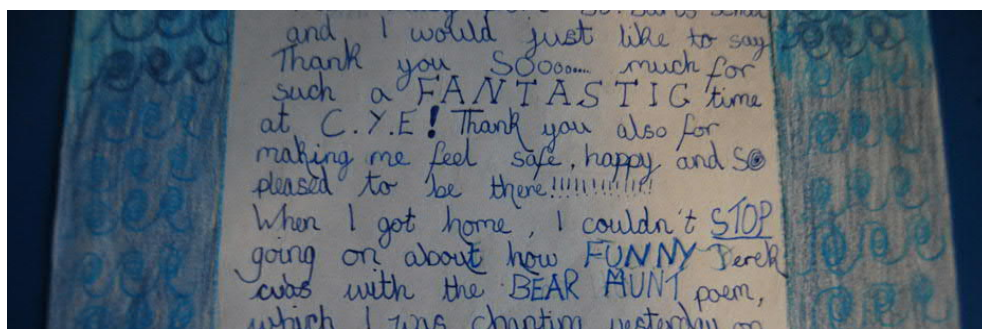 and I would just like to say
Thank you SOooo..... much for
such a FANTASTIC time
at C.Y.E! Thank you also for
making me feel safe, happy and SO
pleased to be there!!!!!!!!!!!!!
When I got home, I couldn't STOP
going on about how FUNNY Derek
was with the BEAR HUNT poem,
which I was chanting yesterday on